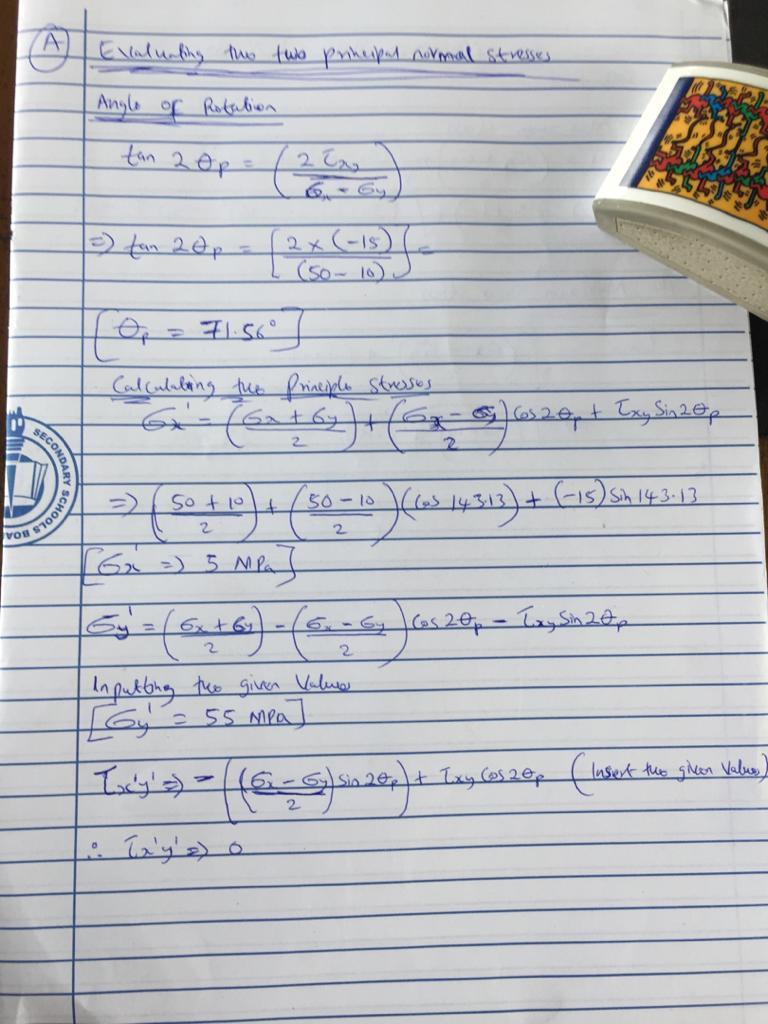 A
Evaluating the two principal normal stresses
Angle of Rotation
tan 2θp = (2τxy / σx - σy)
=> tan 2θp = [2 x (-15) / (50 - 10)] =
[θp = 71.56°]
Calculating the Principle stresses
σx' = (σx + σy / 2) + (σx - σy / 2) Cos 2θp + τxy Sin 2θp
=> (50 + 10 / 2) + (50 - 10 / 2)(Cos 143.13) + (-15) Sin 143.13
[σx' => 5 MPa]
σy' = (σx + σy / 2) - (σx - σy / 2) Cos 2θp - τxy Sin 2θp
Inputting the given values
[σy' = 55 MPa]
τx'y' => - ((σx - σy / 2) Sin 2θp) + τxy Cos 2θp (Insert the given values)
∴ τx'y' => 0
SECONDARY SCHOOLS BOA